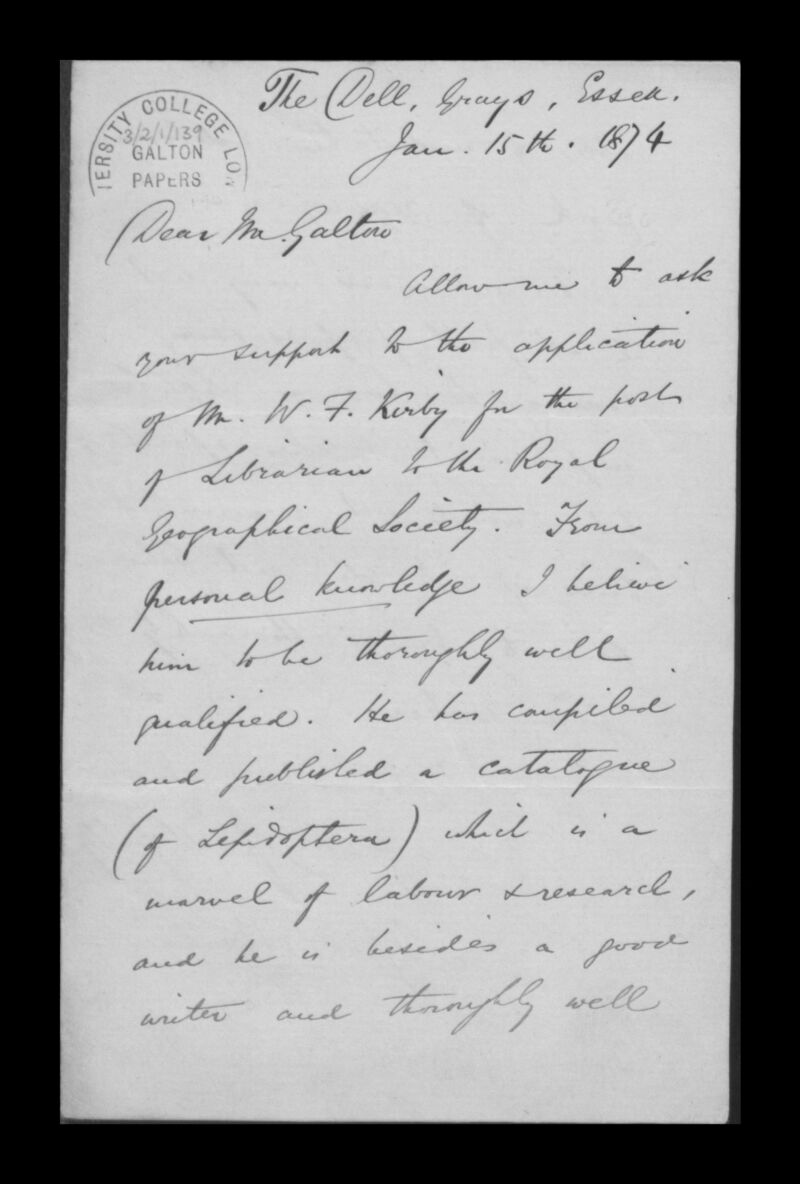 The Dell, Grays, Essex.
Jan. 15th. 1874
ERSITY COLLEGE LON
3/2/1/139
GALTON
PAPERS
Dear Mr. Galton
Allow me to ask
your support to the application
of Mr. W. F. Kirby for the post
of Librarian to the Royal
Geographical Society. From
personal knowledge I believe
him to be thoroughly well
qualified. He has compiled
and published a catalogue
(of Lepidoptera) which is a
marvel of labour & research,
and he is besides a good
writer and thoroughly well